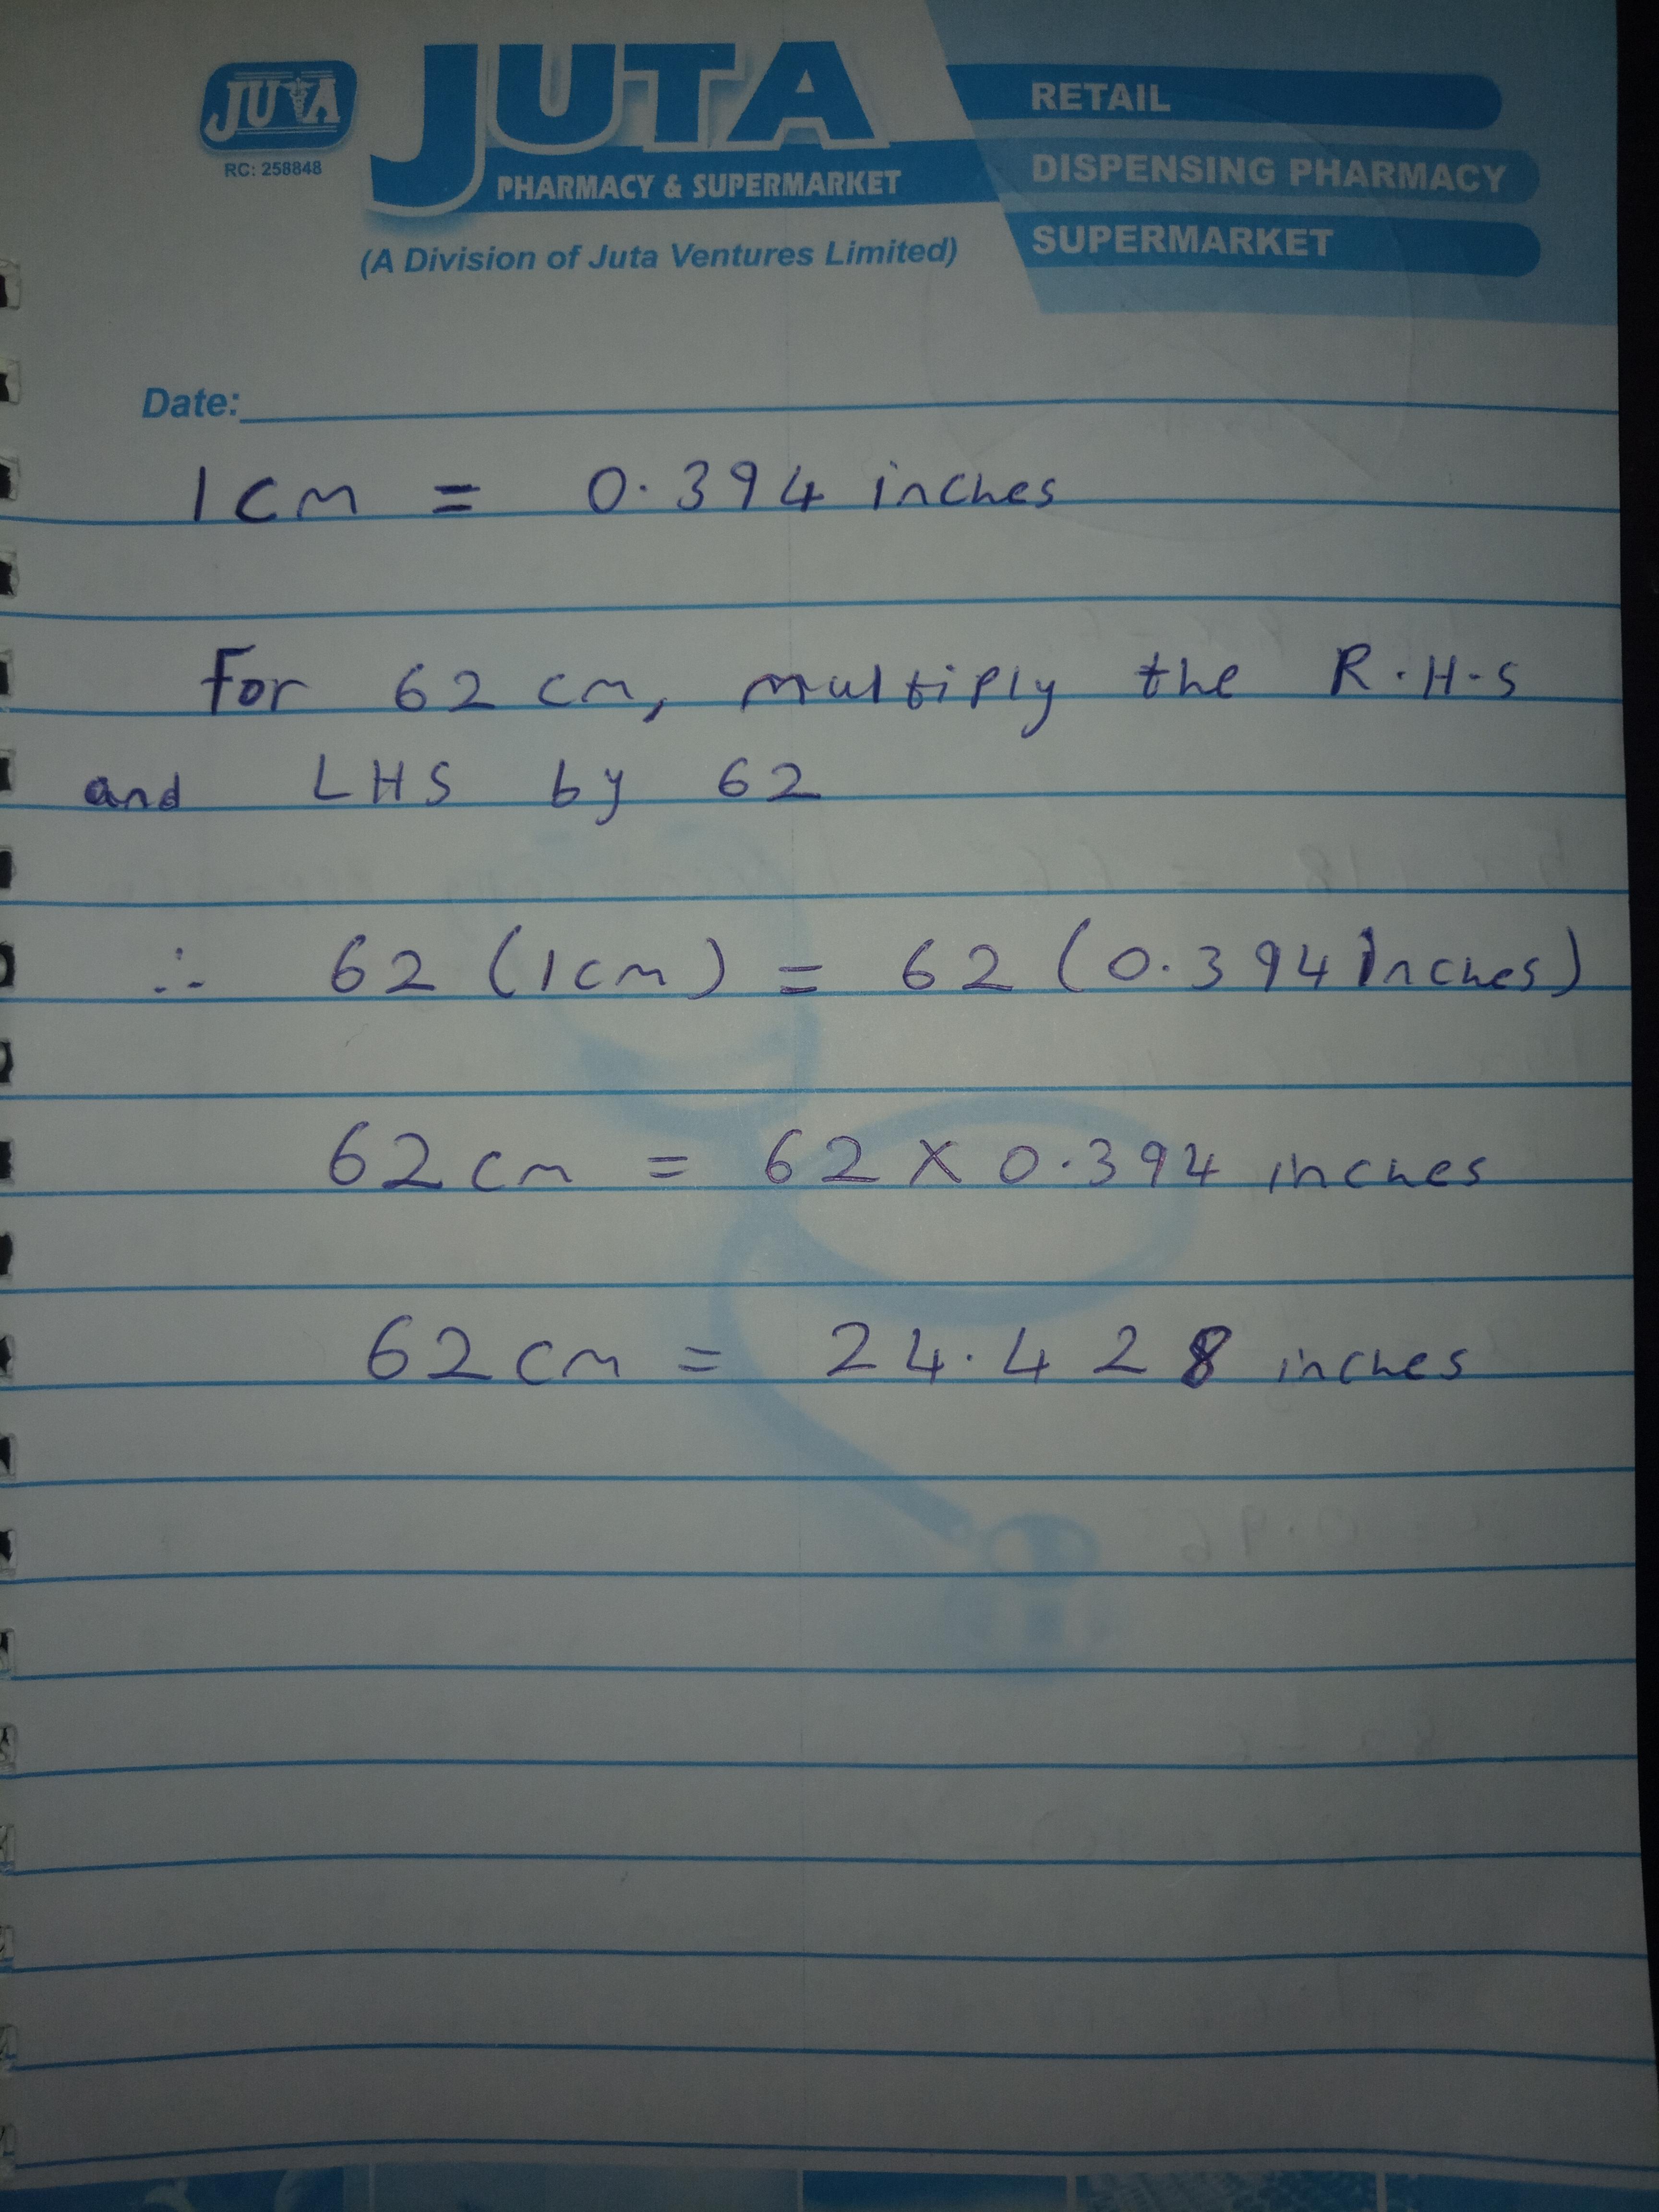 JUTA
RC: 258848
JUTA
PHARMACY & SUPERMARKET
(A Division of Juta Ventures Limited)
RETAIL
DISPENSING PHARMACY
SUPERMARKET
Date:
1 cm = 0.394 inches
For 62 cm, multiply the R.H.S
and LHS by 62
∴ 62 (1cm) = 62 (0.394 Inches)
62 cm = 62 X 0.394 inches
62 cm = 24.428 inches